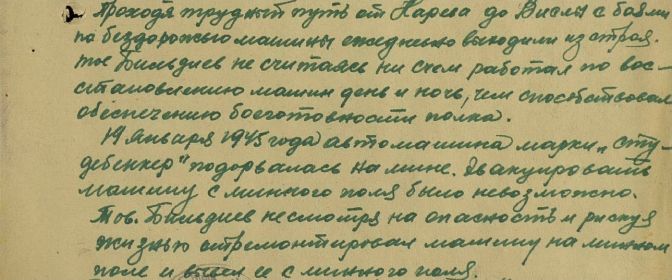 Проходя трудный путь от Нарева до Вислы с боями
по бездорожью машины ежедневно выходили из строя.
тов Бильдиев не считаясь ни с чем работал по вос-
становлению машин день и ночь, чем способствовал
обеспечению боеготовности полка.
19 января 1945 года автомашина марки „Сту-
дебеккер" подорвалась на мине. Эвакуировать
машину с минного поля было невозможно.
Тов. Бильдиев несмотря на опасность и рискуя
жизнью отремонтировал машину на минном
поле и вывел ее с минного поля.